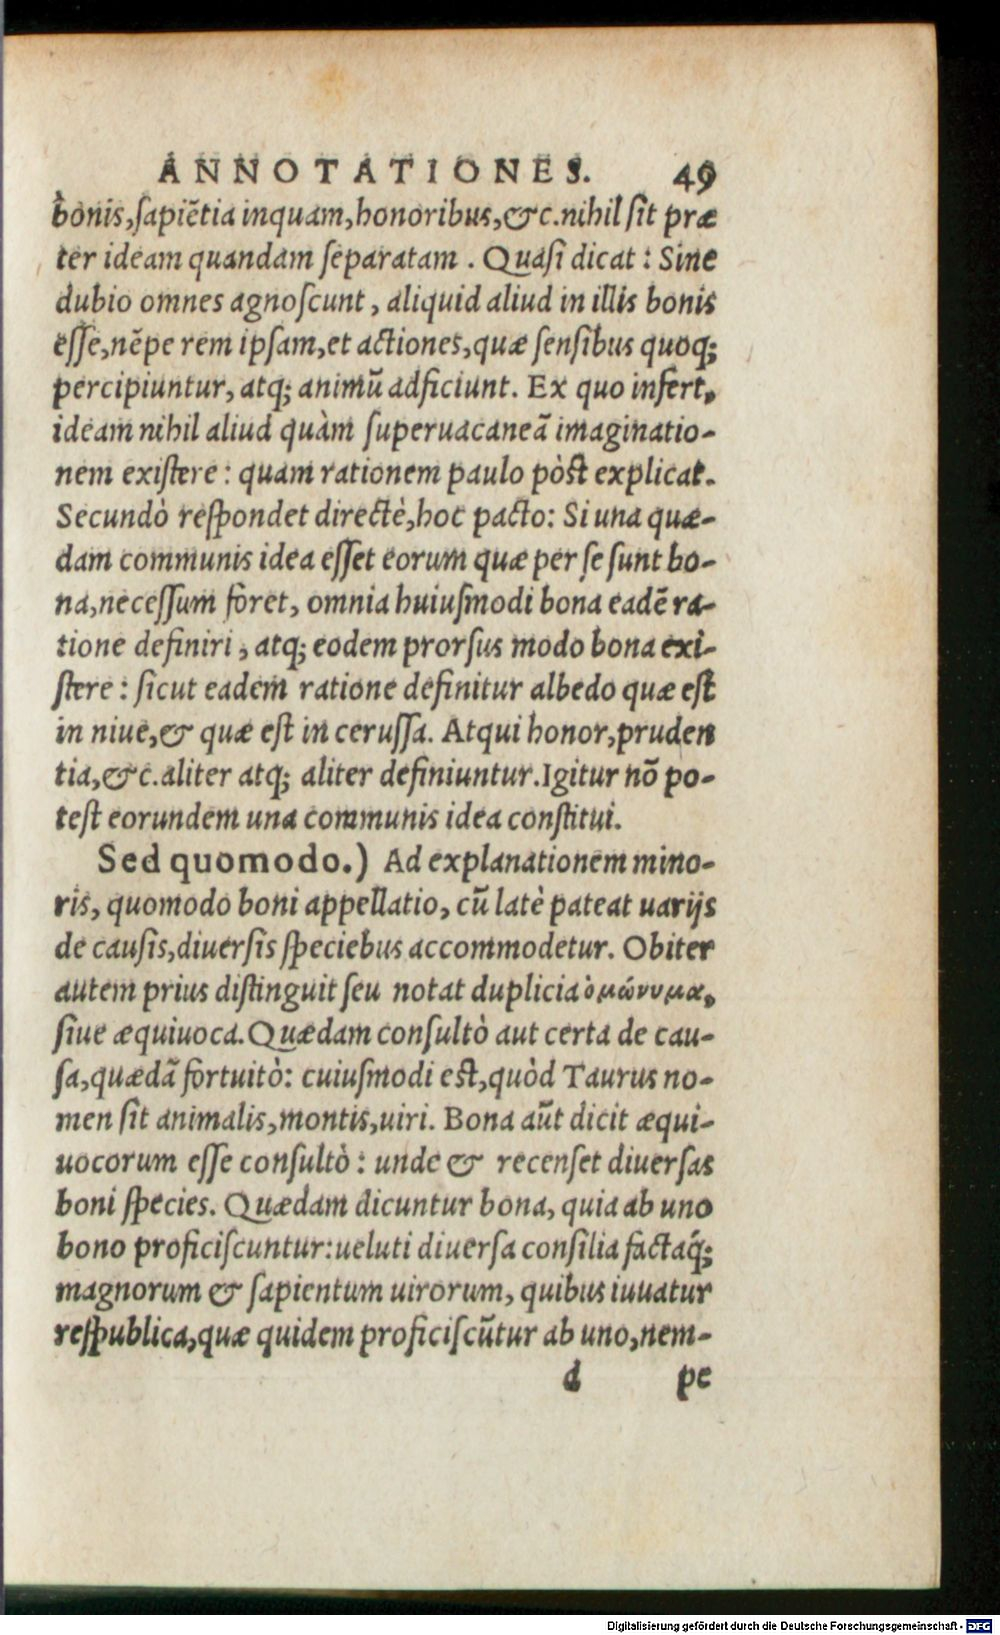 ANNOTATIONES. 49
bonis,ſapiẽtia inquam,honoribus,&c.nihil ſit præ
ter ideam quandam ſeparatam . Quaſi dicat : Sine
dubio omnes agnoſcunt , aliquid aliud in illis bonis
eſſe,nẽpe rem ipſam,et actiones,quæ ſenſibus quoq;
percipiuntur, atq; animũ adficiunt. Ex quo infert,
ideam nihil aliud quàm ſuperuacaneã imaginatio-
nem exiſtere : quam rationem paulo pòſt explicat.
Secundò reſpondet directè,hoc pacto: Si una quæ-
dam communis idea eſſet eorum quæ per ſe ſunt bo-
na,neceſſum foret, omnia huiuſmodi bona eadẽ ra-
tione definiri , atq; eodem prorſus modo bona exi-
ſtere : ſicut eadem ratione definitur albedo quæ eſt
in niue,& quæ eſt in ceruſſa. Atqui honor,pruden
tia,&c.aliter atq; aliter definiuntur.Igitur nõ po-
teſt eorundem una communis idea conſtitui.
Sed quomodo.) Ad explanationem mino-
ris, quomodo boni appellatio, cũ latè pateat uarijs
de cauſis,diuerſis ſpeciebus accommodetur. Obiter
autem prius diſtinguit ſeu notat duplicia ὁμώνυμα,
ſiue æquiuoca. Quædam conſultò aut certa de cau-
ſa,quædã fortuitò: cuiuſmodi eſt,quòd Taurus no-
men ſit animalis,montis,uiri. Bona aũt dicit æqui-
uocorum eſſe conſultò : unde & recenſet diuerſas
boni ſpecies. Quædam dicuntur bona, quia ab uno
bono proficiſcuntur:ueluti diuerſa conſilia factaq́;
magnorum & ſapientum uirorum, quibus iuuatur
reſpublica,quæ quidem proficiſcũtur ab uno,nem-
d pe
Digitalisierung gefördert durch die Deutsche Forschungsgemeinschaft - DFG